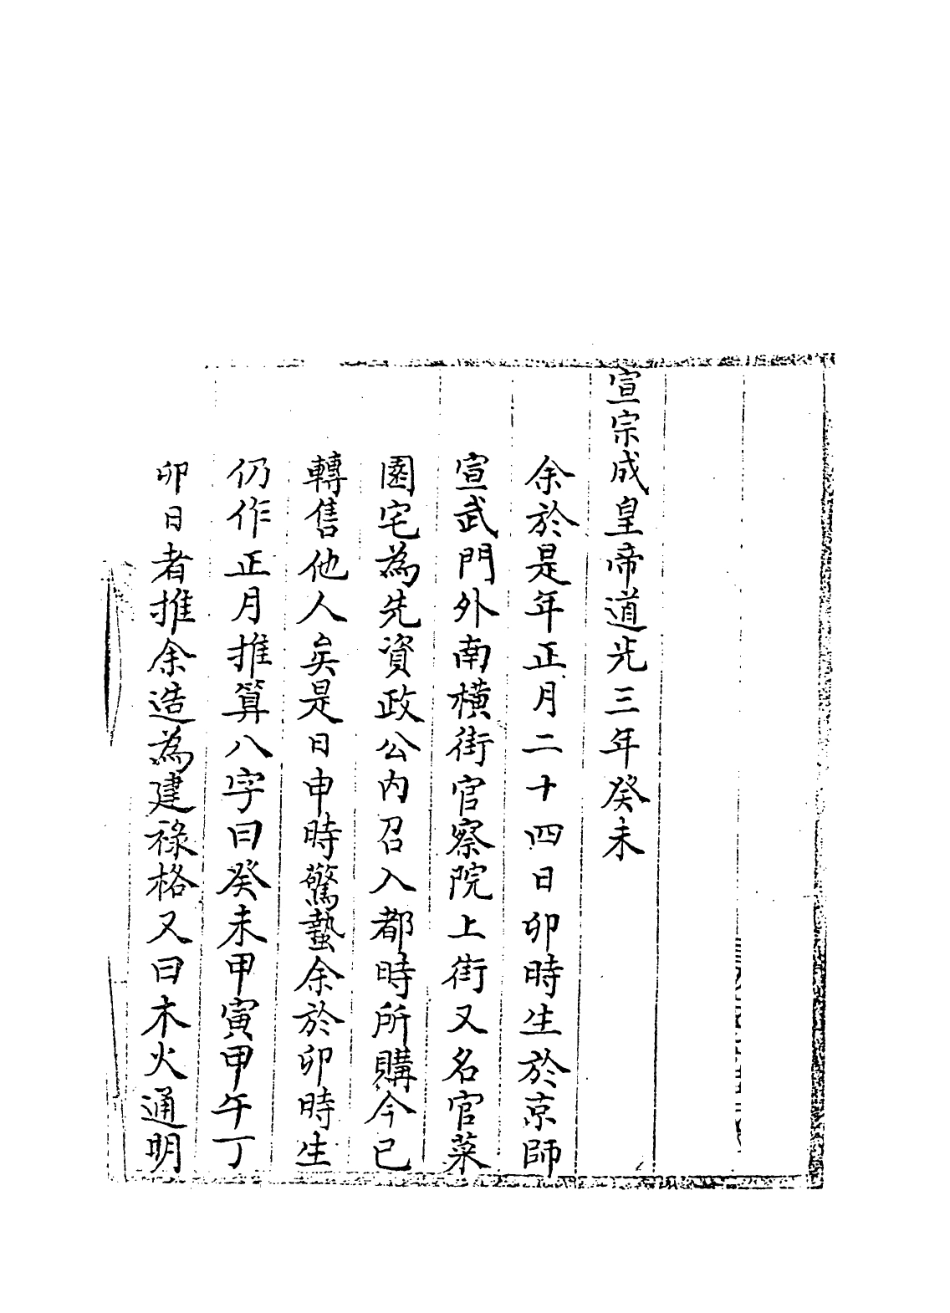 宣宗成皇帝道光三年癸未
余於是年正月二十四日卯時生於京師
宣武門外南橫街官察院上街又名官菜
園宅為先資政公內召入都時所購今已
轉售他人矣是日申時驚蟄余於卯時生
仍作正月推算八字曰癸未甲寅甲午丁
卯日者推余造為建祿格又曰木火通明